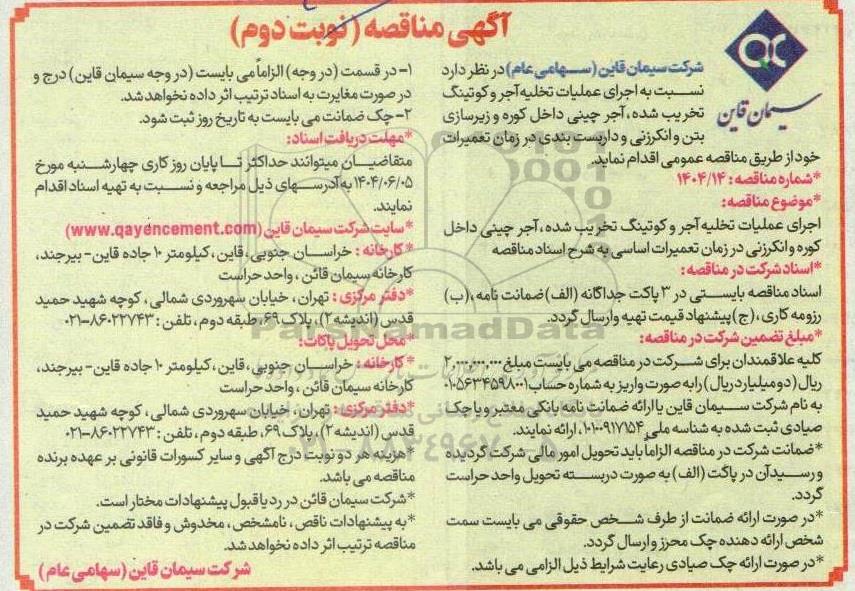 آگهی مناقصه (نوبت دوم)
سیمان قاین
شرکت سیمان قاین (سهامی عام) در نظر دارد
نسبت به اجرای عملیات تخلیه آجر و کوتینگ
تخریب شده، آجر چینی داخل کوره و زیرسازی
بتن و انکرزنی و داربست بندی در زمان تعمیرات
خود از طریق مناقصه عمومی اقدام نماید.
*شماره مناقصه: ۱۴۰۴/۱۴
*موضوع مناقصه:
اجرای عملیات تخلیه آجر و کوتینگ تخریب شده، آجر چینی داخل
کوره و انکرزنی در زمان تعمیرات اساسی به شرح اسناد مناقصه
*اسناد شرکت در مناقصه:
اسناد مناقصه بایستی در ۳ پاکت جداگانه (الف) ضمانت نامه، (ب)
رزومه کاری، (ج) پیشنهاد قیمت تهیه و ارسال گردد.
*مبلغ تضمین شرکت در مناقصه:
کلیه علاقمندان برای شرکت در مناقصه می بایست مبلغ ۲,۰۰۰,۰۰۰,۰۰۰
ریال (دو میلیارد ریال) را به صورت واریز به شماره حساب ۰۱۰۵۶۳۴۵۹۸۰۰۱
به نام شرکت سیمان قاین یا ارائه ضمانت نامه بانکی معتبر و یا چک
صیادی ثبت شده به شناسه ملی ۱۰۱۰۰۹۱۷۱۵۴، ارائه نمایند.
*ضمانت شرکت در مناقصه الزاماً باید تحویل امور مالی شرکت گردیده
و رسید آن در پاکت (الف) به صورت دربسته تحویل واحد حراست
گردد.
*در صورت ارائه ضمانت از طرف شخص حقوقی می بایست سمت
شخص ارائه دهنده چک محرز و ارسال گردد.
*در صورت ارائه چک صیادی رعایت شرایط ذیل الزامی می باشد.
۱- در قسمت (در وجه) الزاماً می بایست (در وجه سیمان قاین) درج و
در صورت مغایرت به اسناد ترتیب اثر داده نخواهد شد.
۲- چک ضمانت می بایست به تاریخ روز ثبت شود.
*مهلت دریافت اسناد:
متقاضیان میتوانند حداکثر تا پایان روز کاری چهارشنبه مورخ
۱۴۰۴/۰۶/۰۵ به آدرسهای ذیل مراجعه و نسبت به تهیه اسناد اقدام
نمایند.
*سایت شرکت سیمان قاین (www.qayencement.com)
*کارخانه: خراسان جنوبی، قاین، کیلومتر ۱۰ جاده قاین- بیرجند،
کارخانه سیمان قائن، واحد حراست
*دفتر مرکزی: تهران، خیابان سهروردی شمالی، کوچه شهید حمید
قدس (اندیشه ۲)، پلاک ۶۹، طبقه دوم، تلفن: ۸۶۰۲۲۷۴۳-۰۲۱
*محل تحویل پاکات:
*کارخانه: خراسان جنوبی، قاین، کیلومتر ۱۰ جاده قاین- بیرجند،
کارخانه سیمان قائن، واحد حراست
*دفتر مرکزی: تهران، خیابان سهروردی شمالی، کوچه شهید حمید
قدس (اندیشه ۲)، پلاک ۶۹، طبقه دوم، تلفن: ۸۶۰۲۲۷۴۳-۰۲۱
*هزینه هر دو نوبت درج آگهی و سایر کسورات قانونی بر عهده برنده
مناقصه می باشد.
*شرکت سیمان قائن در رد یا قبول پیشنهادات مختار است.
*به پیشنهادات ناقص، نامشخص، مخدوش و فاقد تضمین شرکت در
مناقصه ترتیب اثر داده نخواهد شد.
شرکت سیمان قاین (سهامی عام)
ParsNamadData